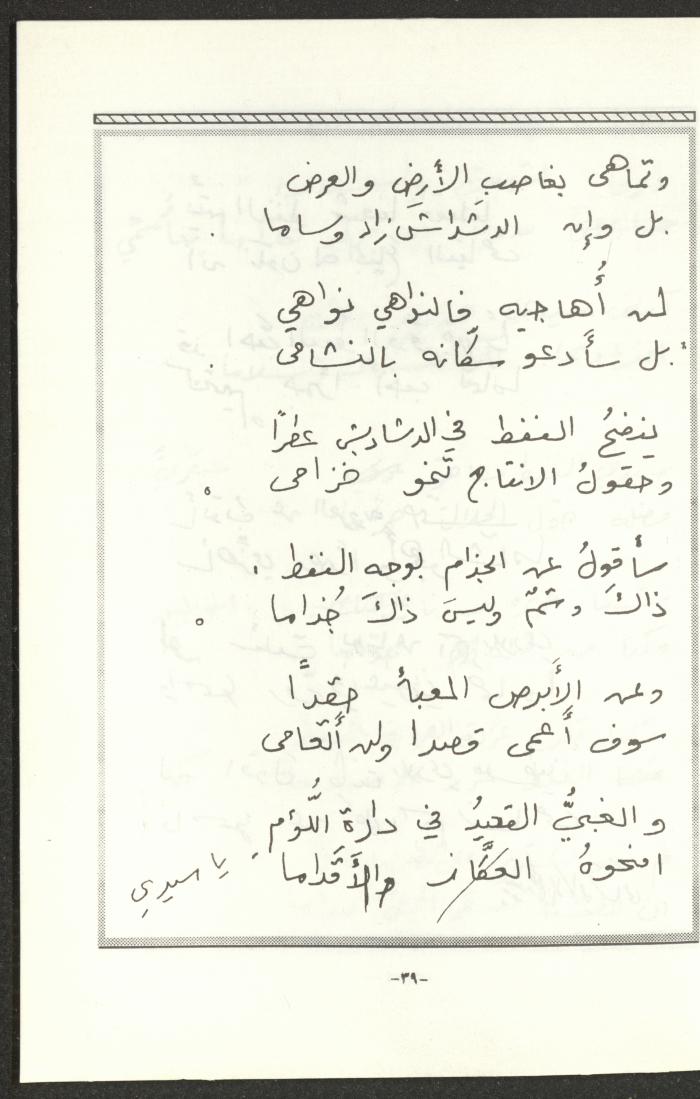 وتماهى بغاصبِ الأرضِ والعرض
بل وإن الدشداش زاد وساما .
لن أُهاجيه فالنواهي نواهي
بل سأدعو سكّانه بالنشامى .
ينضحُ النفط في الدشاديش عطرًا
وحقولُ الانتاج تنمو خزامى .
سأقولُ عن الجذام بوجه النفط .
ذاكَ وشمٌ وليسَ ذاكَ جُذاما .
وعن الأبرص المعبأ حقدًا
سوف أَعمى قصدا ولن أَتعامى
والغبيُّ القعيدُ في دارة اللُّؤم
امنحوهُ العكّاز والأَقداما . يا سيدي
-٣٩-